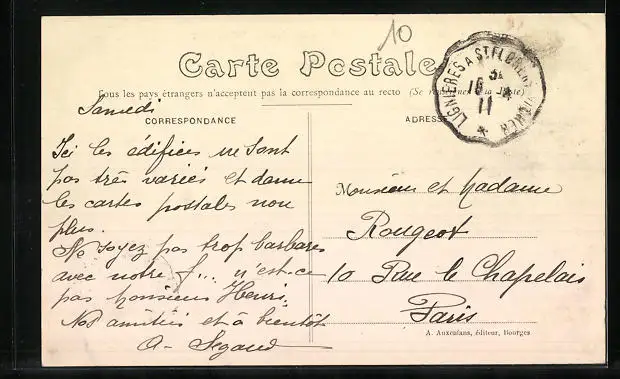 10
Carte Postale
Tous les pays étrangers n'acceptent pas la correspondance au recto (Se renseigner à la Poste)
LIGNIÈRES A ST FLORENT
16
11
Samedi
CORRESPONDANCE
ADRESSE
Ici les édifices ne sont
pas très variés et dame
les cartes postales non
plus.
Ne soyez pas trop barbares
avec notre f... n'est-ce
pas Monsieur Henri.
Nos amitiés et à bientôt
A. Segaud
Monsieur et Madame
Rougeot
10 Rue le Chapelais
Paris
A. Auxenfans, éditeur, Bourges